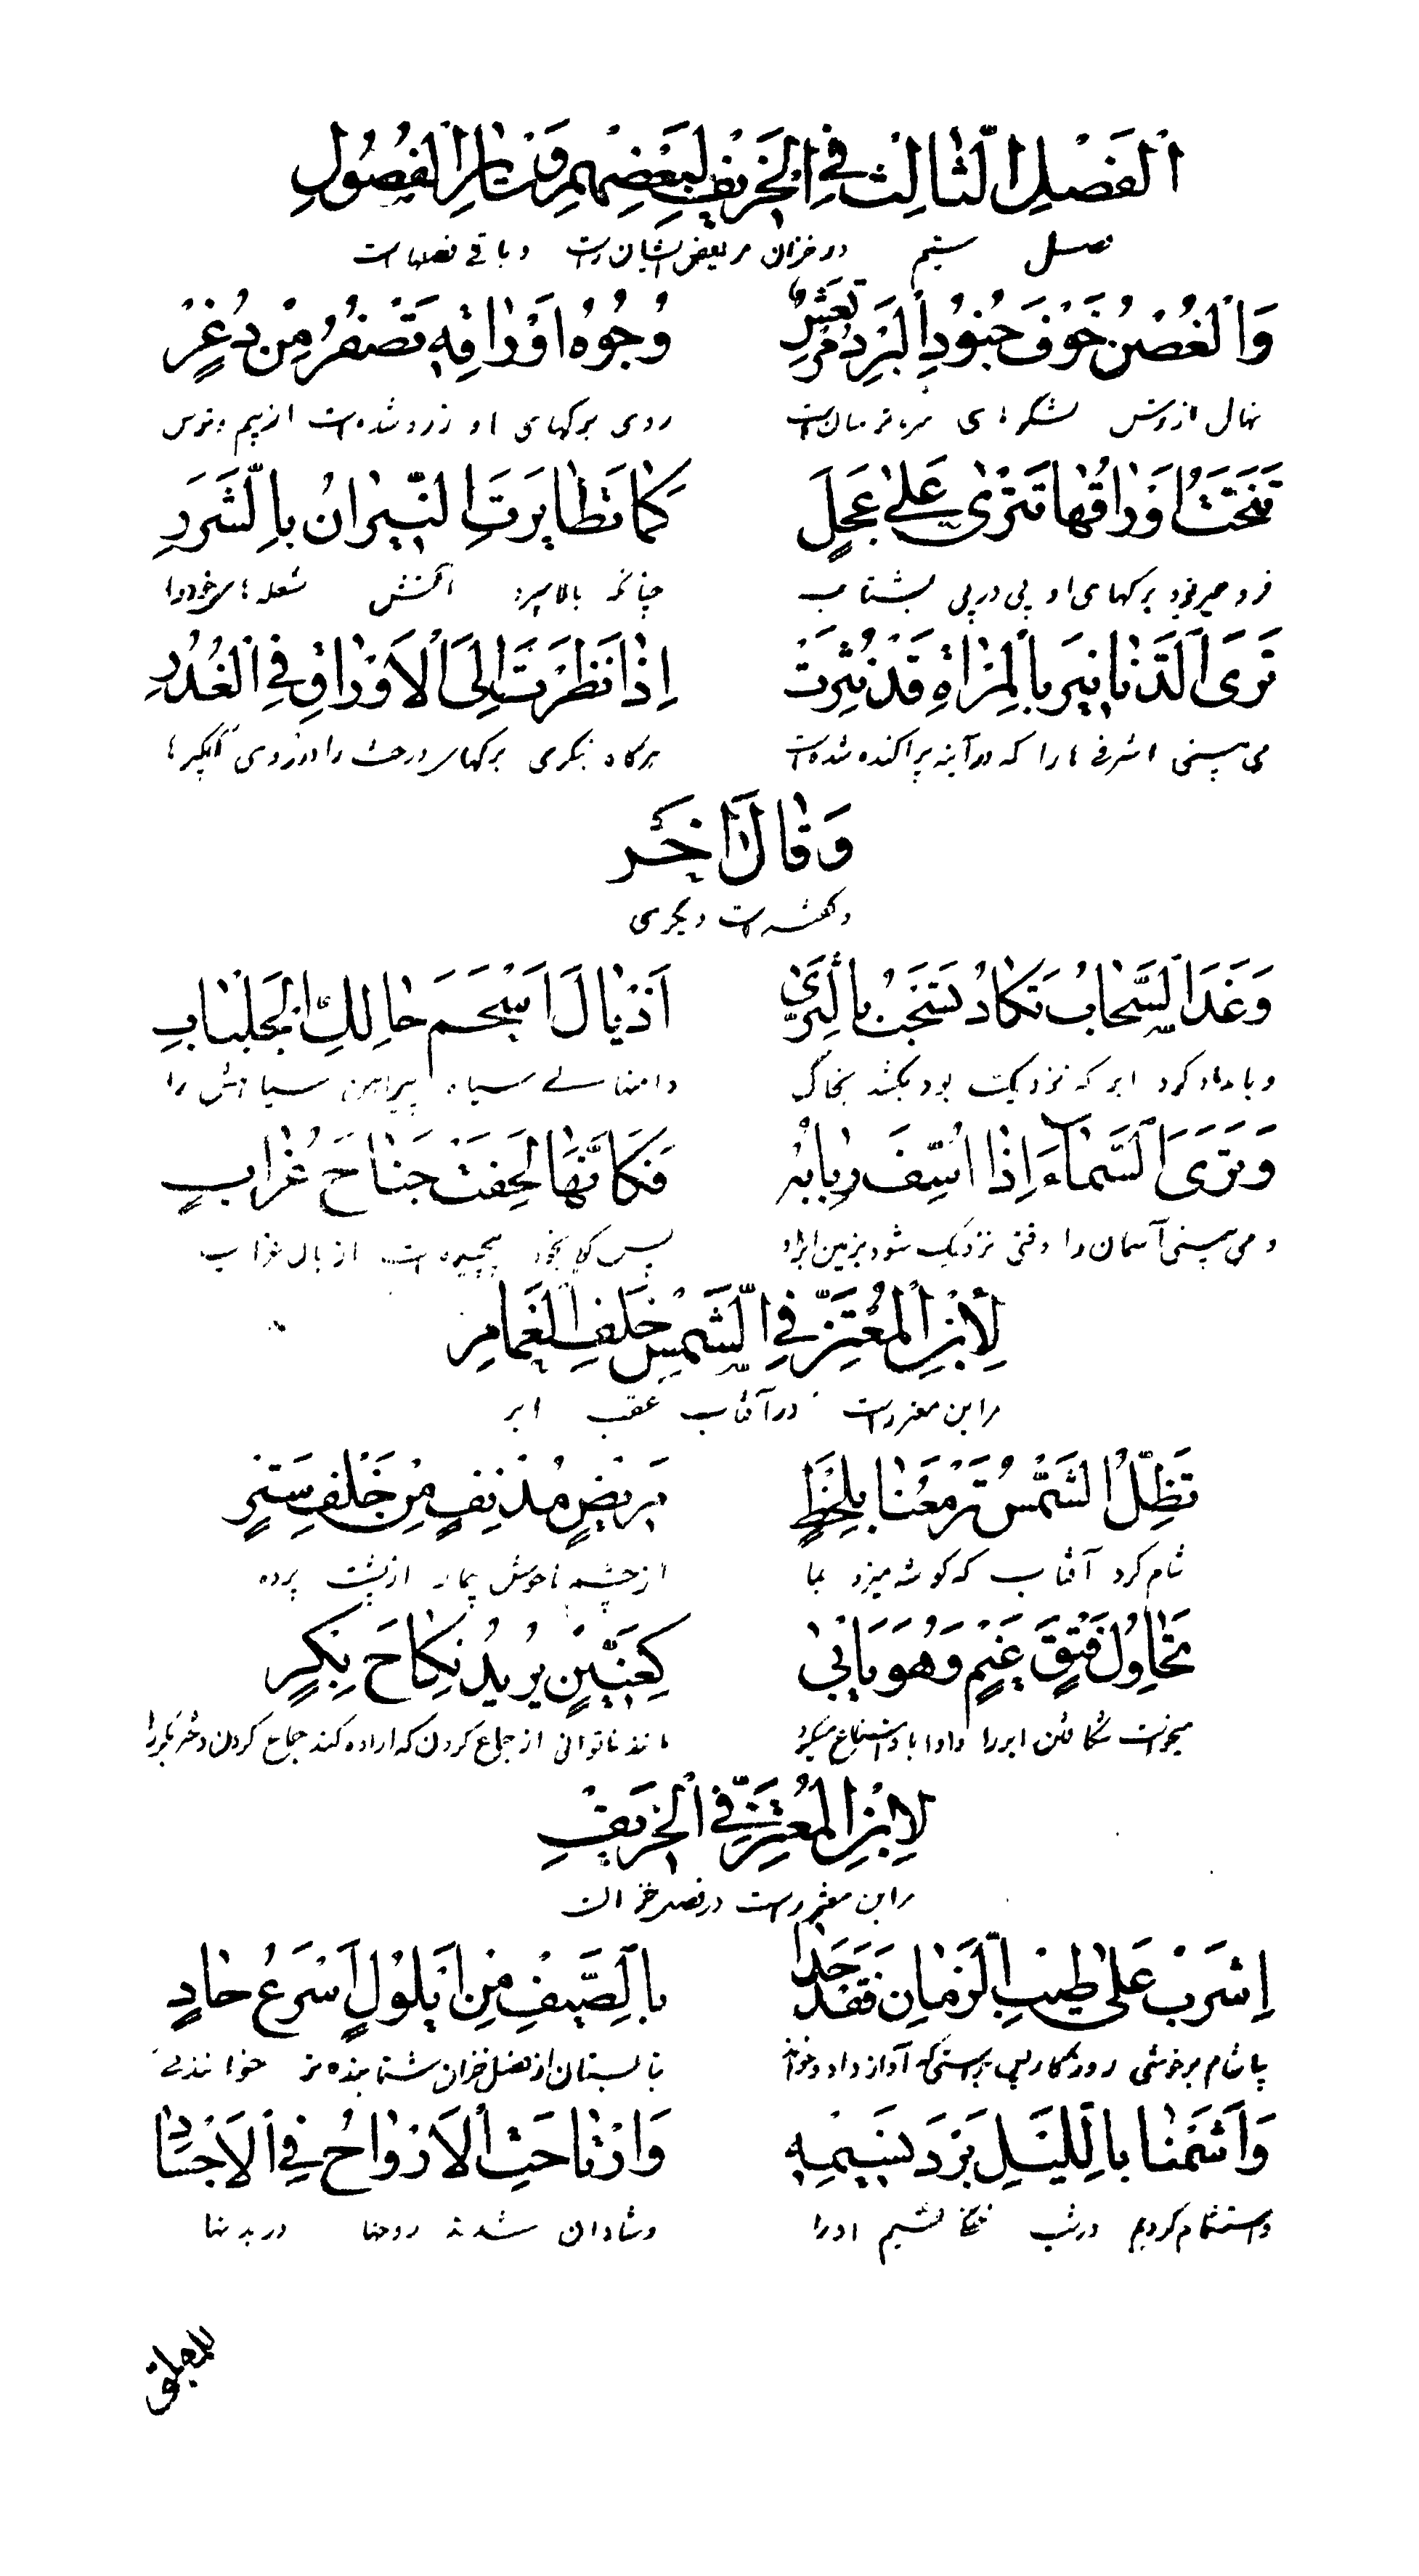 اَلْفَصْلِ الثَّالِثِ فِی الْخَرِیفِ لِبَعْضِهِمْ وَسَایِرِ الْفُصُولِ
فصل سیم در خزان مر بعض ایشان راست و باقی فصلها است
وَالْغُصْنُ خَوْفَ جُنُودِ الْبَرْدِ مُرْتَعِشٌ وُجُوهُ اَوْرَاقِهِ تَصْفَرُّ مِنْ ذُعْرٍ
نهال از ترس لشکرهای سرما لرزان است روی برکهای او زرد شده است از بیم و ترس
تَنْحَتُّ اَوْرَاقُهَا تَتْرٰی عَلٰی عَجَلٍ کَمَا تَطَایَرَتِ النِّیرَانُ بِالشَّرَرِ
فرو میریزد برکهای او پی در پی بشتاب چنانکه بالا میپرد آتش شعلهٔا خود را
تَرَی الدَّنَانِیرَ بِالْمِرْاٰةِ قَدْ نُثِرَتْ اِذَا نَظَرْتَ اِلَی الْاَوْرَاقِ فِی الْغُدُرِ
می بینی اشرفی ها را که در آینه پراکنده شده است هرکاه بنکری برکهای درخت را در روی آبکیرها
وَقَالَ اٰخَر
و کفته است دیکری
وَغَدَا السَّحَابُ تَکَادُ تَسْحَبُ بِالثَّرٰی اَذْیَالَ اَسْحَمَ حَالِكِ الْجِلْبَابِ
و بامداد کرد ابر که نزدیکت بود بکشد بخاک دامنهای سیاه پیراهن سیاهش را
وَتَرَی السَّمَاءَ اِذَا اَسَفَّ رَبَابُهُ فَکَاَنَّهَا لَحِفَتْ جَنَاحَ غُرَابٍ
و می بینی آسمان را وقتی نزدیک شود بزمین ابر او پس کویا بخود پیچیده است از بال غراب
لِابْنِ الْمُعْتَزِّ فِی الشَّمْسِ خَلْفَ الْغَمَامِ
مر ابن معتز راست در آفتاب عقب ابر
تَظَلُّ الشَّمْسُ تَرْمَعُنَا بِلَحْظٍ مَرِیضٍ مُدْنِفٍ مِنْ خَلْفِ سِتْرٍ
شام کرد آفتاب که کوشه میزد بما از چشم ناخوش بیمار از پشت پرده
تُحَاوِلُ فَتْقَ غَیْمٍ وَهُوَ یَاْبٰی کَعِنِّینٍ یُرِیدُ نِکَاحَ بِکْرٍ
میخواست شکافتن ابر را و او ابا و امتناع میکرد مانند ناتوانی از جماع کردن که اراده کند جماع کردن دختر بکر را
لِابْنِ الْمُعْتَزِّ فِی الْخَرِیفِ
مر ابن معتز راست در فصل خزان
اِشْرَبْ عَلٰی طِیبِ الزَّمَانِ فَقَدْ حَدَا بِالصَّیْفِ مِنْ اَیْلُولٍ اَسْرَعُ حَادٍ
بیاشام بر خوشی روزکار پس بدرستی که آواز داد و خواند تابستان از فصل خزان شتابنده تر خوانندهٔ
وَاَشَمَّنَا بِاللَّیْلِ بَرْدَ نَسِیمِهِ وَارْتَاحَتِ الْاَرْوَاحُ فِی الْاَجْسَادِ
و استشمام کردیم در شب نسیم او را و شادان شدند روحها در بدنها